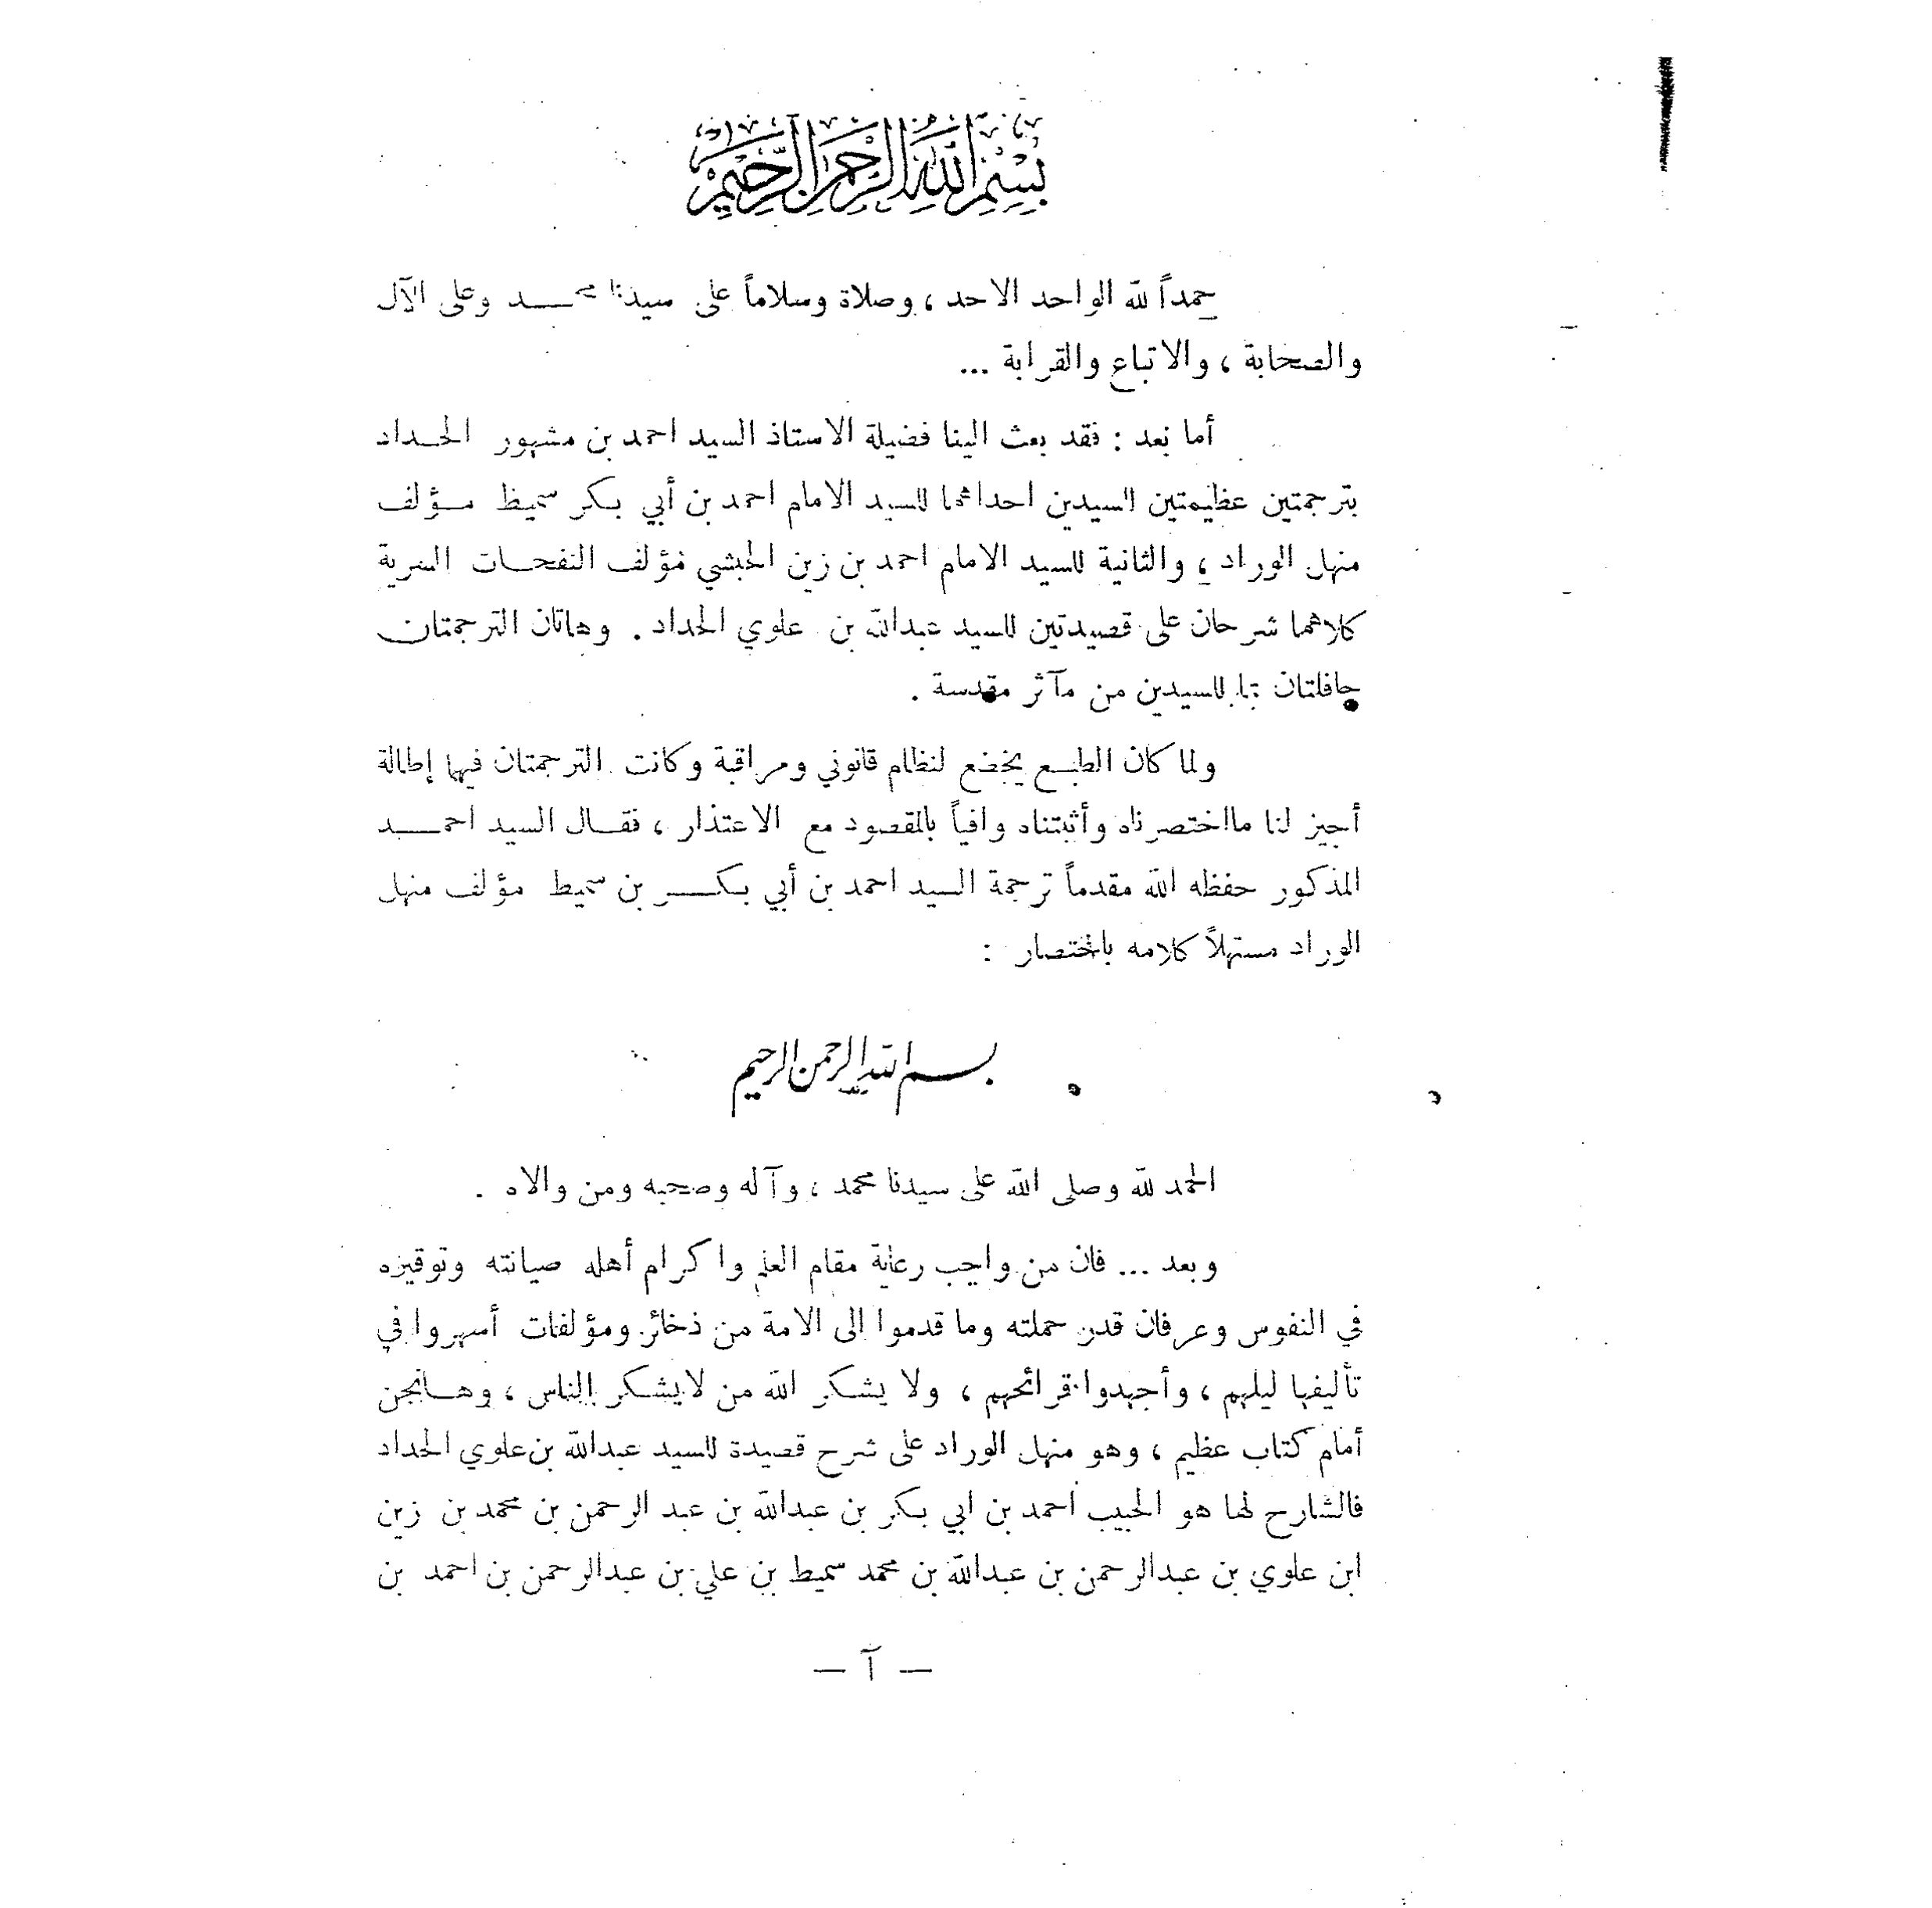 بسم الله الرحمن الرحيم
حمداً لله الواحد الاحد ، وصلاة وسلاماً على سيدنا محمد وعلى الآل
والصحابة ، والاتباع والقرابة ...
أما بعد : فقد بعث الينا فضيلة الاستاذ السيد احمد بن مشهور الحداد
بترجمتين عظيمتين السيدين احداهما للسيد الامام احمد بن أبي بكر سميط مؤلف
منهل الوراد ، والثانية للسيد الامام احمد بن زين الحبشي مؤلف النفحات السرية
كلاهما شرحان على قصيدتين للسيد عبدالله بن علوي الحداد . وهاتان الترجمتان
حافلتان بما للسيدين من مآثر مقدسة .
ولما كان الطبع يخضع لنظام قانوني ومراقبة وكانت الترجمتان فيها إطالة
أجيز لنا مااختصرناه وأثبتناه وافياً بالمقصود مع الاعتذار ، فقال السيد احمد
المذكور حفظه الله مقدماً ترجمة السيد احمد بن أبي بكر بن سميط مؤلف منهل
الوراد مستهلاً كلامه باختصار :
بسم الله الرحمن الرحيم
الحمد لله وصلى الله على سيدنا محمد ، وآله وصحبه ومن والاه .
وبعد ... فان من واجب رعاية مقام العلم واكرام أهله صيانته وتوقيره
في النفوس وعرفان قدر حملته وما قدموا الى الامة من ذخائر ومؤلفات أسهروا في
تأليفها ليلهم ، وأجهدوا قرائحهم ، ولا يشكر الله من لايشكر الناس ، وهانحن
أمام كتاب عظيم ، وهو منهل الوراد على شرح قصيدة للسيد عبدالله بن علوي الحداد
فالشارح لها هو الحبيب أحمد بن ابي بكر بن عبدالله بن عبد الرحمن بن محمد بن زين
ابن علوي بن عبدالرحمن بن عبدالله بن محمد سميط بن علي بن عبدالرحمن بن احمد بن
— آ —